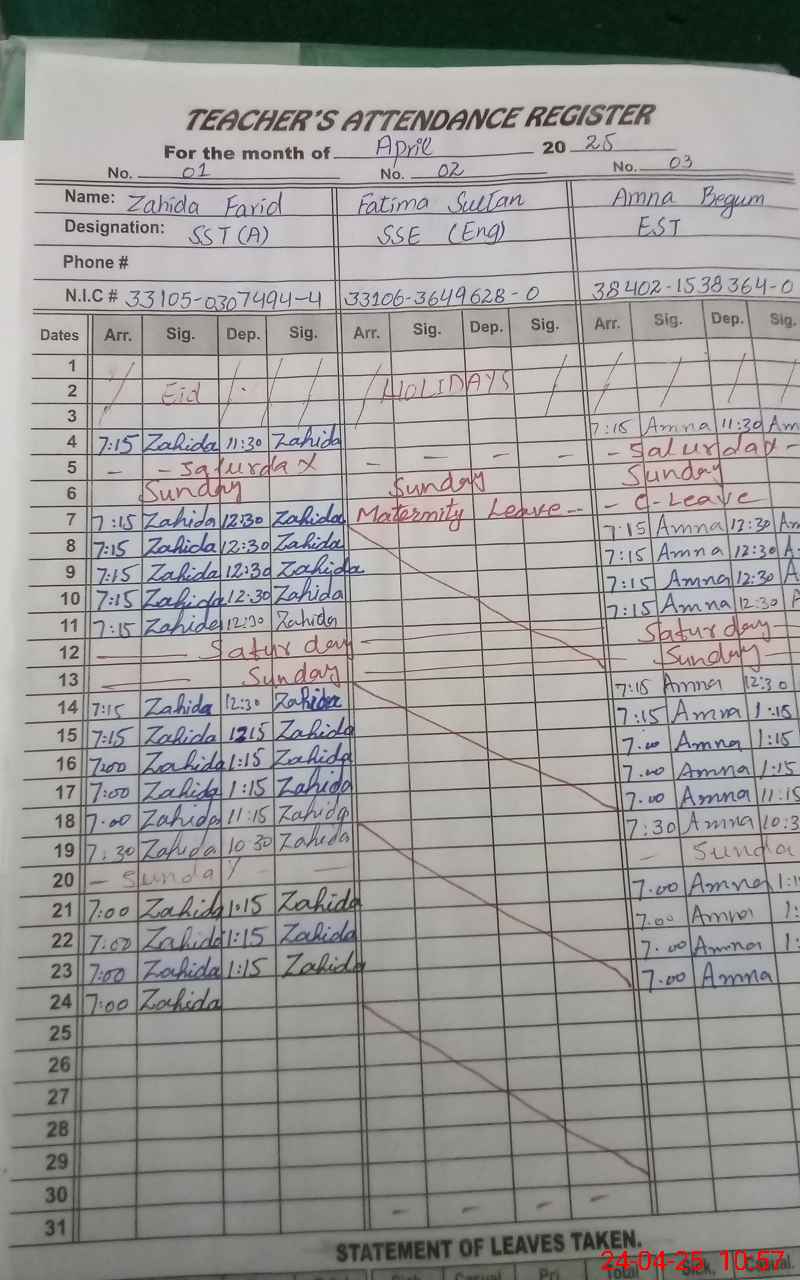 TEACHER'S ATTENDANCE REGISTER
For the month of April 20 25
No. 01 No. 02 No. 03
Name: Zahida Farid Fatima Sultan Amna Begum
Designation: SST (A) SSE (Eng) EST
Phone #
N.I.C # 33105-0307494-4 33106-3649628-0 38402-1538364-0
Dates Arr. Sig. Dep. Sig. Arr. Sig. Dep. Sig. Arr. Sig. Dep. Sig.
1
2 Eid HOLIDAYS
3
4 7:15 Zahida 11:30 Zahida 7:15 Amna 11:30 Am
5 - - Saturday - - - - - Saturday -
6 Sunday Sunday Sunday
7 7:15 Zahida 12:30 Zahida Maternity Leave - - - C-Leave
8 7:15 Zahida 12:30 Zahida 7:15 Amna 12:30 An
9 7:15 Zahida 12:30 Zahida 7:15 Amna 12:30 A
10 7:15 Zahida 12:30 Zahida 7:15 Amna 12:30 A
11 7:15 Zahida 12:30 Zahida 7:15 Amna 12:30 A
12 Saturday Saturday
13 Sunday Sunday
14 7:15 Zahida 12:30 Zahida 7:15 Amna 12:30
15 7:15 Zahida 1215 Zahida 7:15 Amna 1:15
16 7:00 Zahida 1:15 Zahida 7:00 Amna 1:15
17 7:00 Zahida 1:15 Zahida 7:00 Amna 1:15
18 7:00 Zahida 11:15 Zahida 7:00 Amna 11:15
19 7:30 Zahida 10:30 Zahida 7:30 Amna 10:3
20 - Sunday - - - Sunda
21 7:00 Zahida 1:15 Zahida 7:00 Amna 1:1
22 7:00 Zahida 1:15 Zahida 7:00 Amna 1:
23 7:00 Zahida 1:15 Zahida 7:00 Amna 1:
24 7:00 Zahida 7:00 Amna
25
26
27
28
29
30
31 - - - -
STATEMENT OF LEAVES TAKEN.
Sick Casual Pri. Total Sick. Casual.
24-04-25 10:57